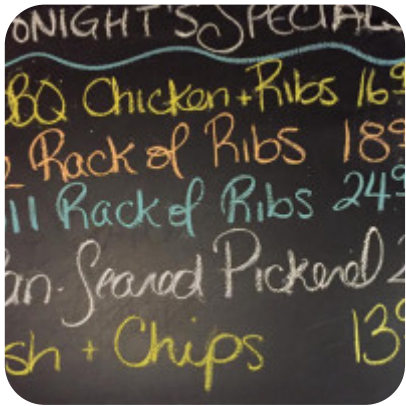 ONIGHT'S SPECIALS
BBQ Chicken + Ribs 169
2 Rack of Ribs 189
ll Rack of Ribs 249
an-Seared Pickerel 2
sh + Chips 139